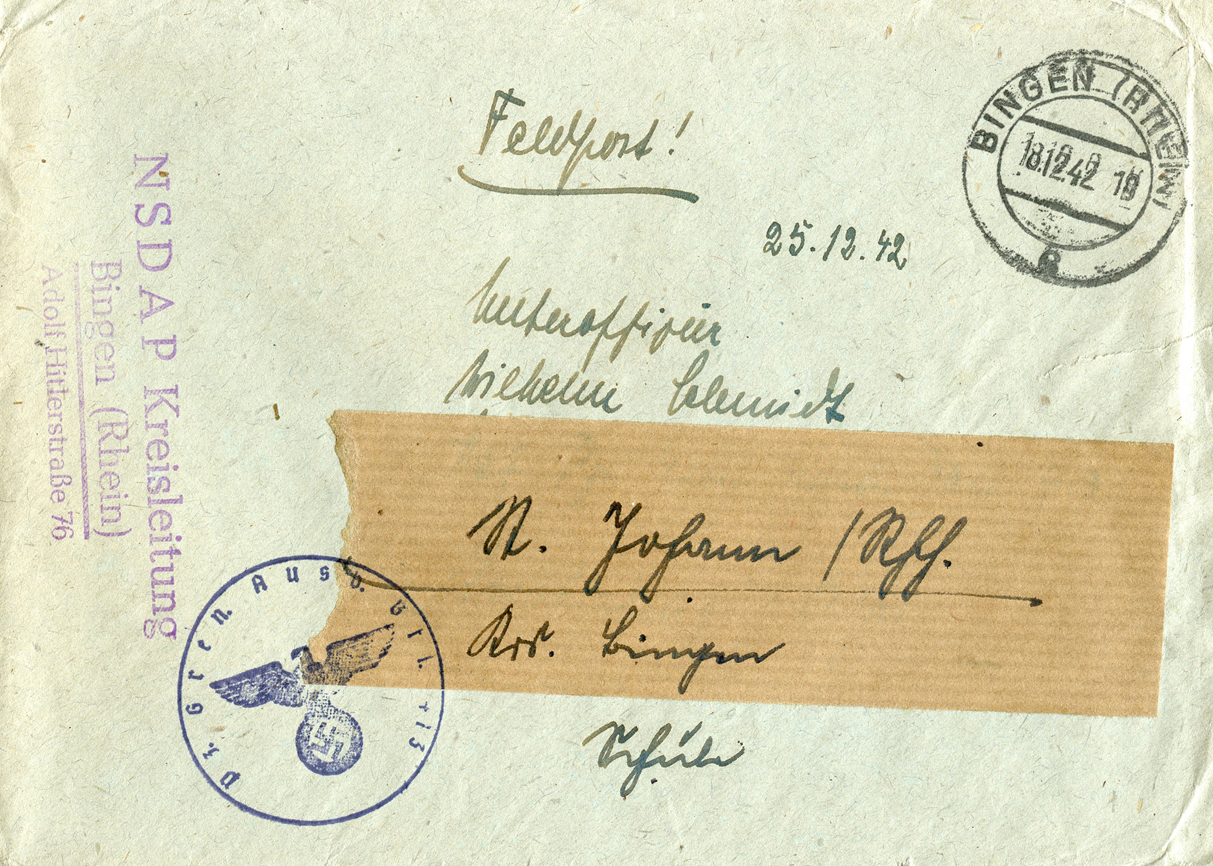 Feldpost!
BINGEN (RHEIN)
18.12.42 19
25.12.42
Unteroffizier
Wilhelm Schmidt
St. Johann / Rhh.
Krs. Bingen
Schule
NSDAP Kreisleitung
Bingen (Rhein)
Adolf Hitlerstraße 76
Pz. Gren. Ausb. Btl. 413